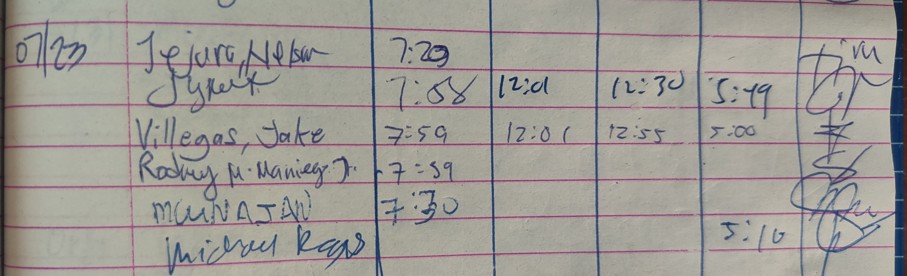 07/23 Tejura, Nelson 7:20
7:58 12:01 12:30 5:49
Villegas, Jake 7:59 12:01 12:55 5:00
Rodney M. Maniego Jr. 7:59
MCUNAJAN 7:30
Michael 5:10